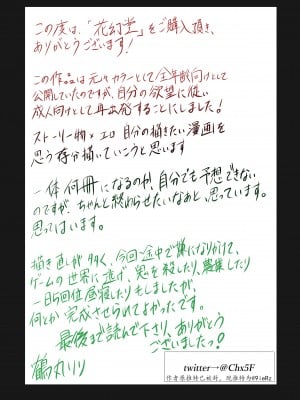 この度は、「花幻堂」をご購入頂き、
ありがとうございます!
この作品は元々カラーとして全年齢向けとして
公開していたのですが、自分の欲望に従い
成人向けとして再出発することにしました!
ストーリー物×エロ 自分の描きたい漫画を
思う存分描いていこうと思います
一体何冊になるのか、自分でも予想できない
のですが、ちゃんと終わらせたいなあと、思っています。
思ってはいます。
描き直しが多く、今回途中で嫌になりかけて、
ゲームの世界に逃げ、鬼を殺したり、農業したり
一日5回位昼寝したりもしましたが、
何とか完成させられてよかったです。
最後まで読んで下さり、ありがとう
ございましたっ!
鶴丸いり
twitter→@Chx5F
作者原推特已被封,现推特为